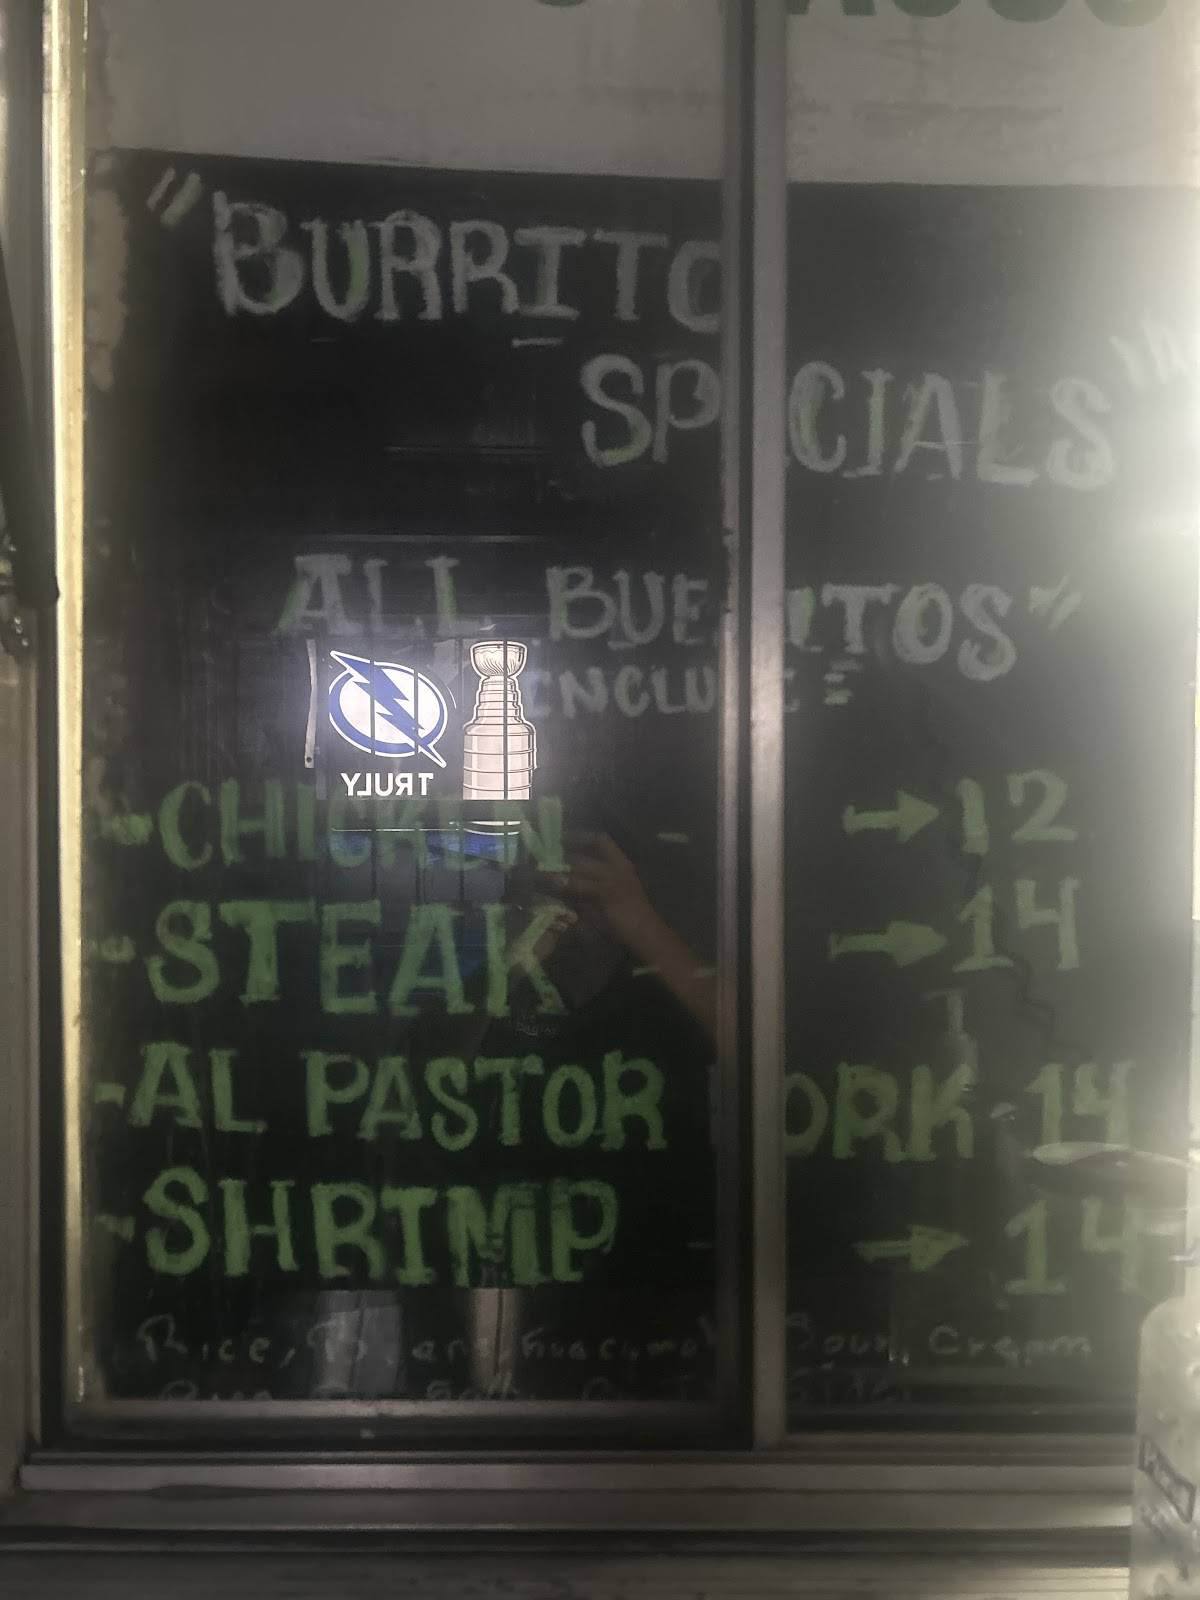 "BURRITO
SPECIALS"
ALL BURRITOS"
INCLUDE=
TRULY
-CHICKEN - → 12
-STEAK - - → 14
-AL PASTOR PORK-14
-SHRIMP - → 14
Rice, Sour Cream